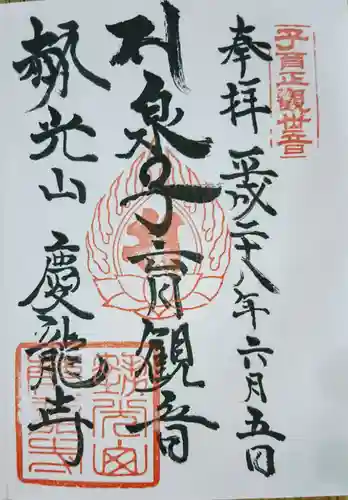 子育正觀世音
奉拝 平成二十八年六月五日
泉子育観音
光山 慶龍寺